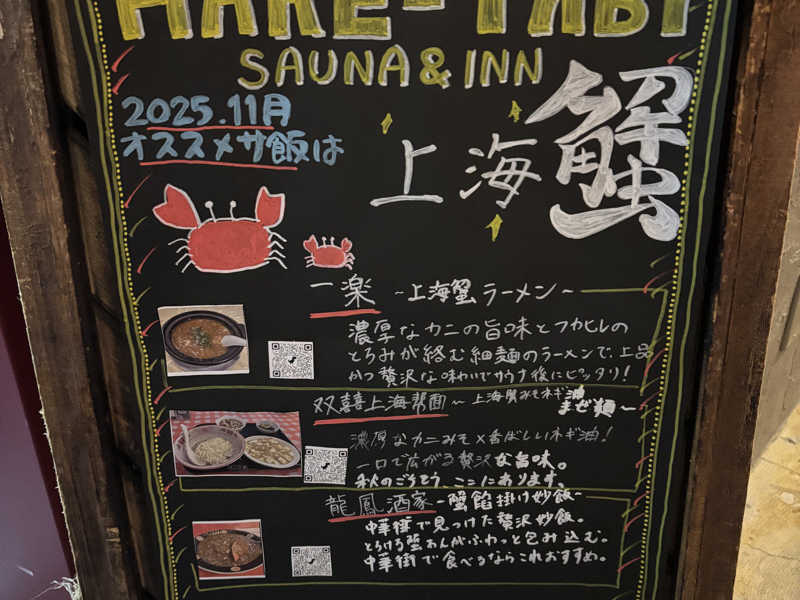 HARE-TABI
SAUNA & INN
2025.11月
オススメサ飯は
上海蟹
一楽 ~上海蟹ラーメン~
濃厚なカニの旨味とフカヒレの
とろみが絡む細麺のラーメンで、上品
かつ贅沢な味わいでサウナ後にピッタリ!
双喜上海帮面~上海蟹みそネギ油
まぜ麺~
濃厚なカニみそ×香ばしいネギ油!
一口で広がる贅沢な旨味。
秋のごちそう、ここにあります。
龍鳳酒家-蟹餡掛け炒飯~
中華街で見つけた贅沢炒飯。
とろける蟹あんがふわっと包み込む。
中華街で食べるならこれおすすめ。